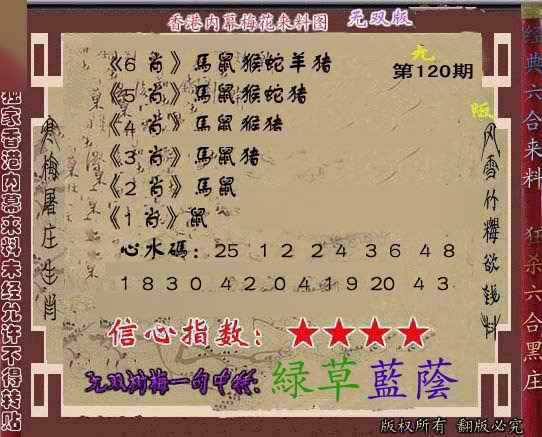 香港内幕梅花来料图 无双版
第120期
《6 肖》馬鼠猴蛇羊猪
《5 肖》馬鼠猴蛇猪
《4 肖》馬鼠猴猪
《3 肖》馬鼠猪
《2 肖》馬鼠
《1 肖》鼠
心水碼：25 12 24 36 48
18 30 42 04 19 20 43
信心指数：★★★★
绿草藍蔭
独家香港内幕来料未经允许不得转贴
寒梅屠庄生肖
经典六合来料 狂杀六合黑庄
版权所有 翻版必究